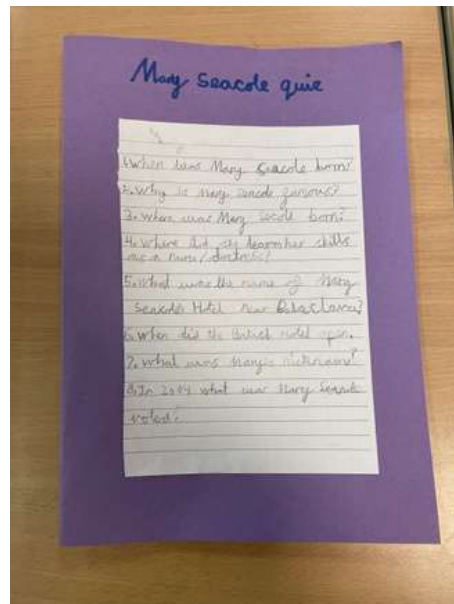 Mary Seacole quiz
1. When was Mary Seacole born?
2. Why is Mary Seacole famous?
3. Where was Mary Secole born?
4. Where did she learn her skills
as a nurse/doctress?
5. What was the name of Mary
Seacoles Hotel near Balaclava?
6. When did the British Hotel open.
7. What was Mary's nickname?
8. In 2004 what was Mary Seacole
voted?